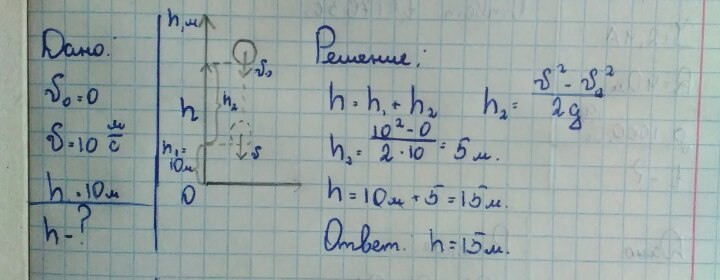 Дано:
v₀ = 0
v = 10 м/с
h = 10м
h - ?
h, м
v₀
h
h₂
h₁ = 10м
v
0
Решение:
h = h₁ + h₂ h₂ = (v² - v₀²)/2g
h₂ = (10² - 0)/(2 · 10) = 5 м.
h = 10м + 5 = 15м.
Ответ: h = 15м.